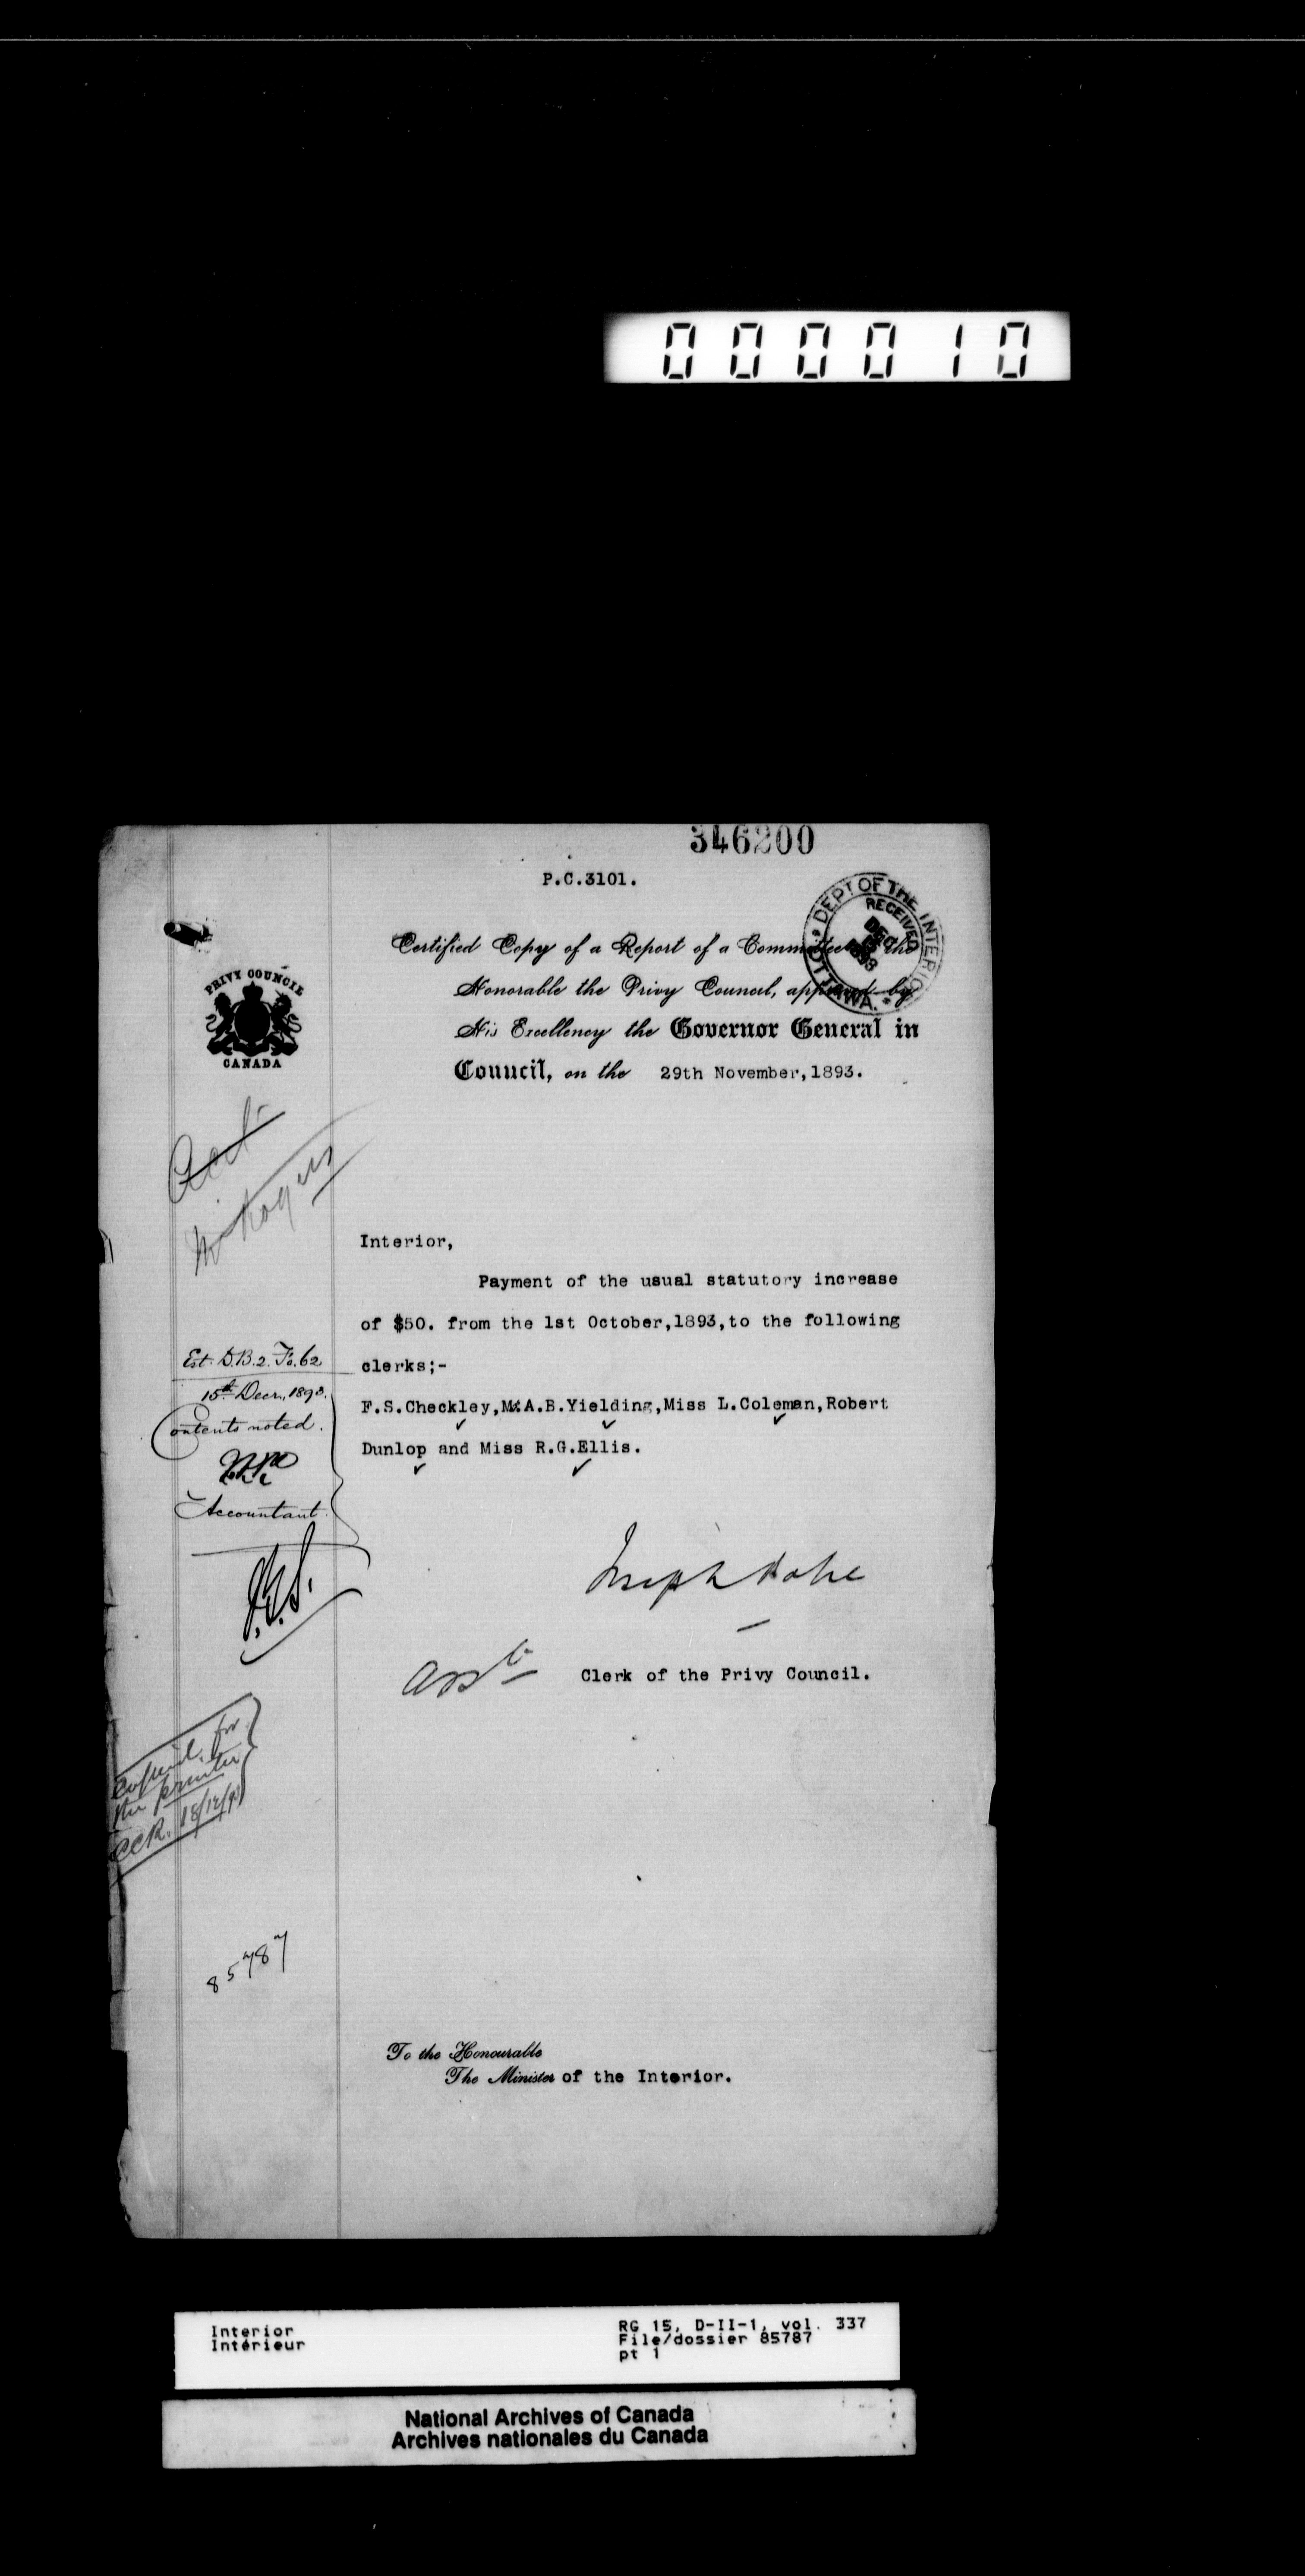 000010
346200
P.C.3101.
DEPT OF THE INTERIOR
RECEIVED
DEC
1893
OTTAWA.
PRIVY COUNCIL
CANADA
Certified Copy of a Report of a Committee of the
Honorable the Privy Council, approved by
His Excellency the Governor General in
Council, on the 29th November,1893.
Interior,
Payment of the usual statutory increase
of $50. from the 1st October,1893,to the following
clerks;-
F.S.Checkley,M.A.B.Yielding,Miss L.Coleman,Robert
Dunlop and Miss R.G.Ellis.
Est. D.B.2. Fo.62
15th Decr., 1893.
Contents noted.
Accountant.
Asst
Clerk of the Privy Council.
Copied for
the printer
CCR. 18/12/93
85787
To the Honourable
The Minister of the Interior.
Interior
Intérieur
RG 15, D-II-1, vol. 337
File/dossier 85787
pt 1
National Archives of Canada
Archives nationales du Canada